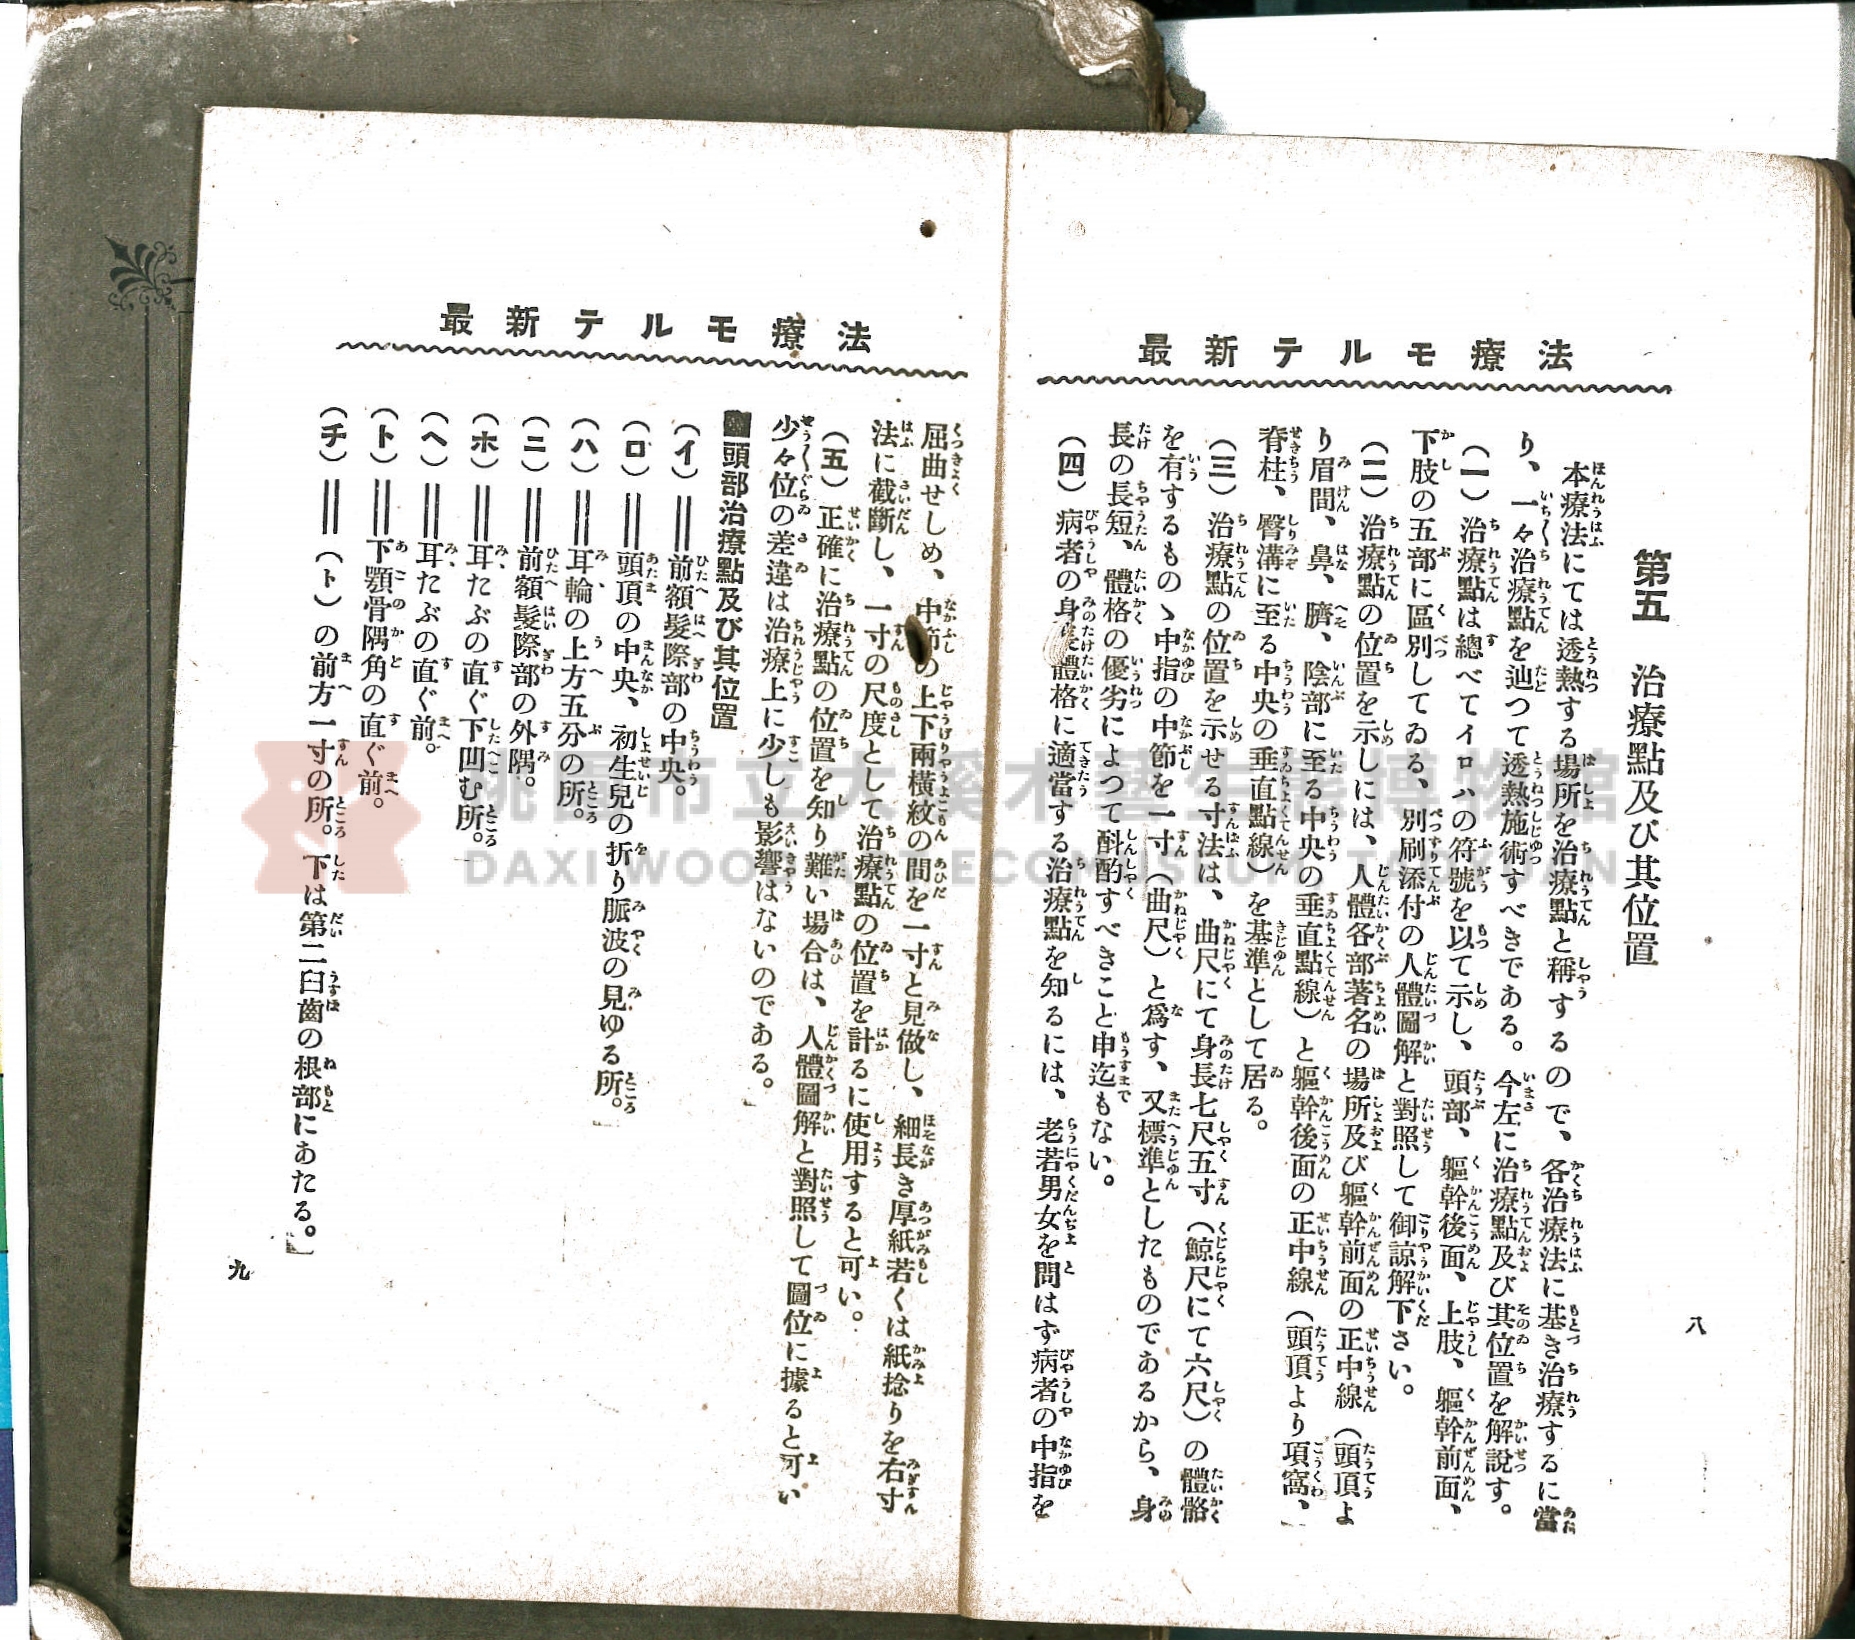 最新テルモ療法
第五　治療點及び其位置
本療法にては透熱する場所を治療點と稱するので、各治療法に基き治療するに當
り、一々治療點を辿つて透熱施術すべきである。今左に治療點及び其位置を解說す。
（一）治療點は總べてイロハの符號を以て示し、頭部、軀幹後面、上肢、軀幹前面、
下肢の五部に區別してゐる、別刷添付の人體圖解と對照して御諒解下さい。
（二）治療點の位置を示しには、人體各部著名の場所及び軀幹前面の正中線（頭頂よ
り眉間、鼻、臍、陰部に至る中央の垂直點線）と軀幹後面の正中線（頭頂より項窩、
脊柱、臀溝に至る中央の垂直點線）を基準として居る。
（三）治療點の位置を示せる寸法は、曲尺にて身長七尺五寸（鯨尺にて六尺）の體骼
を有するものゝ中指の中節を一寸（曲尺）と爲す、又標準としたものであるから、身
長の長短、體格の優劣によつて斟酌すべきこと申迄もない。
（四）病者の身體格に適當する治療點を知るには、老若男女を問はず病者の中指を
八
最新テルモ療法
屈曲せしめ、中節の上下兩橫紋の間を一寸と見做し、細長き厚紙若くは紙捻りを右寸
法に截斷し、一寸の尺度として治療點の位置を計るに使用すると可い。
（五）正確に治療點の位置を知り難い場合は、人體圖解と對照して圖位に據ると可い
少々位の差違は治療上に少しも影響はないのである。
頭部治療點及び其位置
（イ）＝＝前額髮際部の中央。
（ロ）＝＝頭頂の中央、初生兒の折り脈波の見ゆる所。
（ハ）＝＝耳輪の上方五分の所。
（ニ）＝＝前額髮際部の外隅。
（ホ）＝＝耳たぶの直ぐ下凹む所。
（ヘ）＝＝耳たぶの直ぐ前。
（ト）＝＝下顎骨隅角の直ぐ前。
（チ）＝＝（ト）の前方一寸の所。下は第二臼齒の根部にあたる。
九
桃園市立大溪木藝生態博物館
DAXI WOOD ECOMUSEUM, TAOYUAN